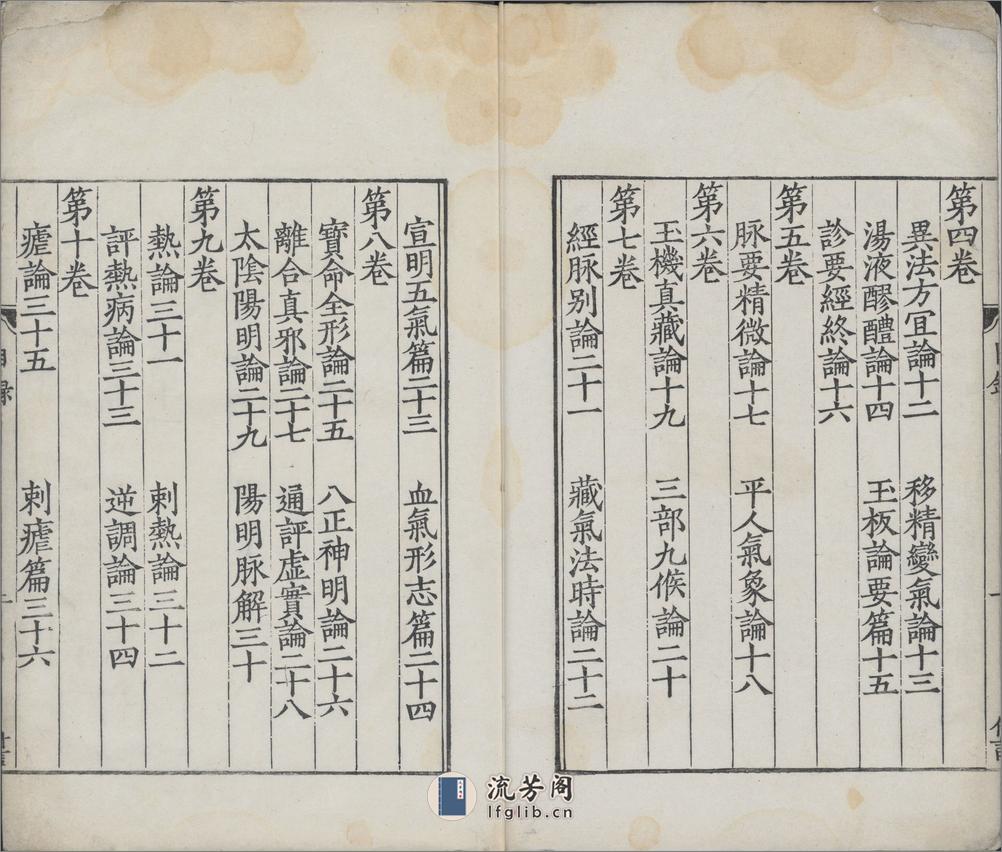 第四卷
異法方冝論十二　移精變氣論十三
湯液醪醴論十四　玉板論要篇十五
診要經終論十六
第五卷
脉要精微論十七　平人氣象論十八
第六卷
玉機真藏論十九　三部九候論二十
第七卷
經脉别論二十一　藏氣法時論二十二
宣明五氣篇二十三　血氣形志篇二十四
第八卷
寶命全形論二十五　八正神明論二十六
離合真邪論二十七　通評虚實論二十八
太陰陽明論二十九　陽明脉解三十
第九卷
熱論三十一　刺熱論三十二
評熱病論三十三　逆調論三十四
第十卷
瘧論三十五　刺瘧篇三十六
目録
流芳阁
lfglib.cn